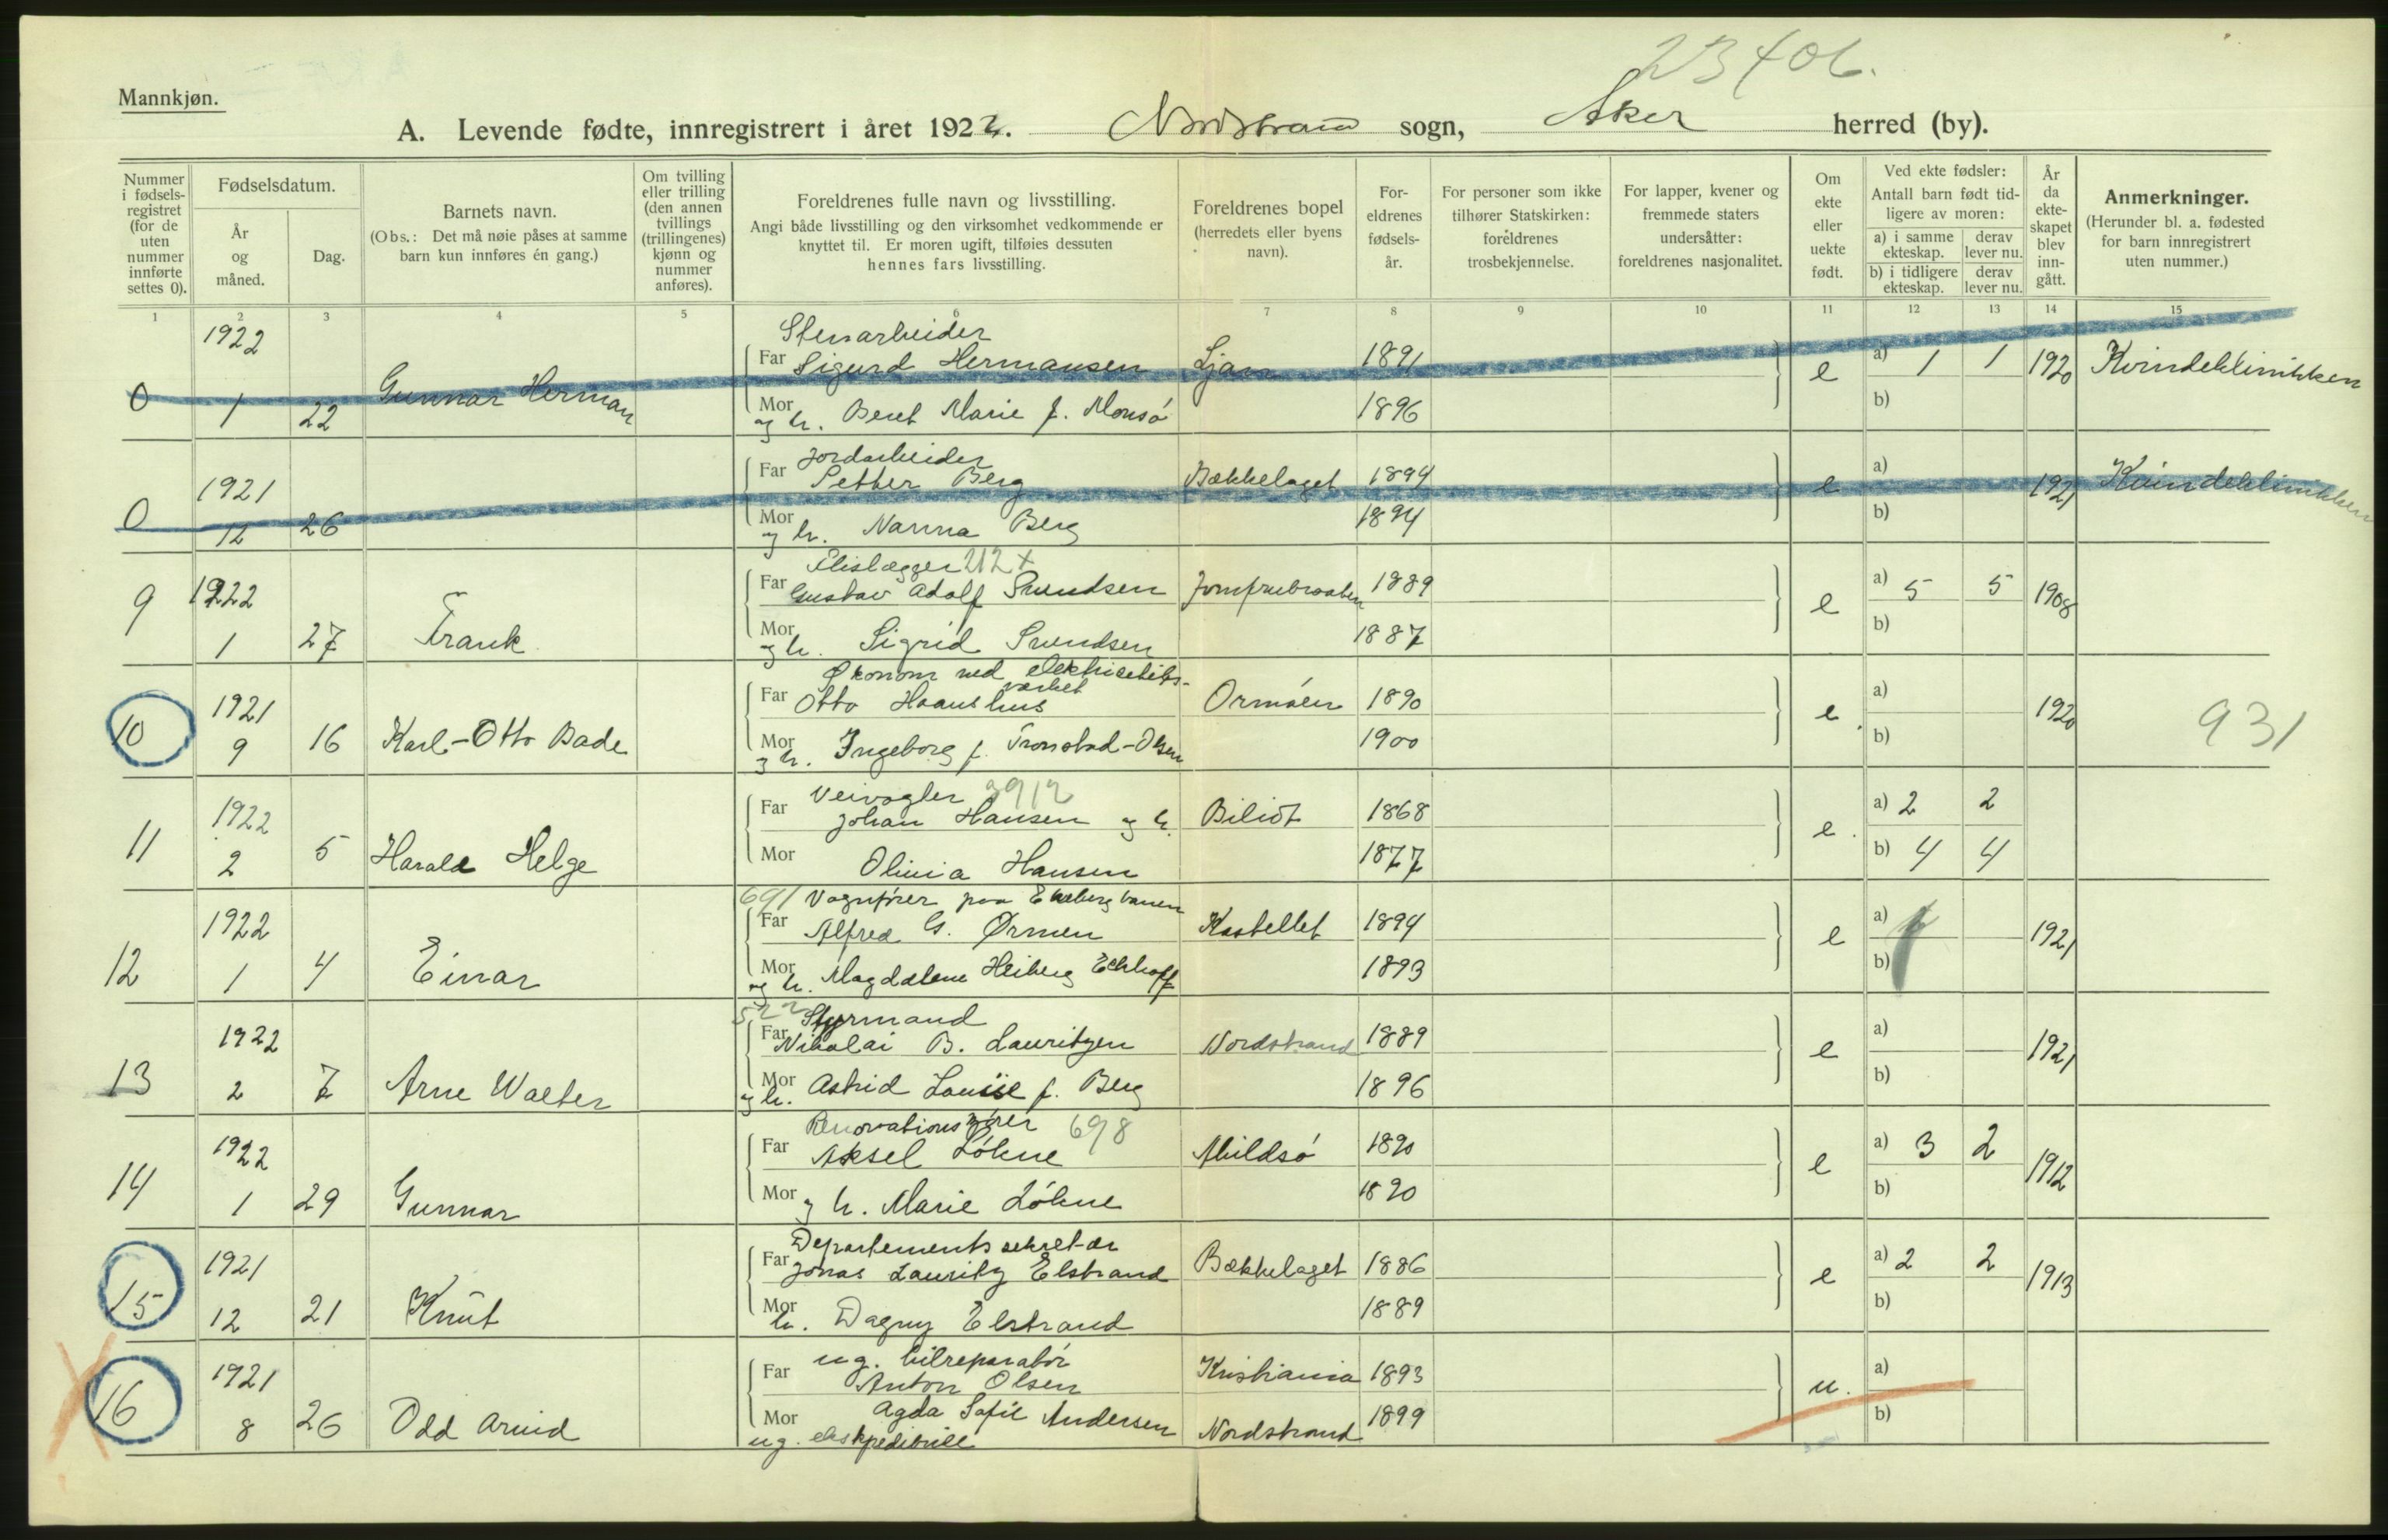 23406.
Mannkjøn.
A. Levende fødte, innregistrert i året 1922. Nordstrand sogn, Aker herred (by).
Nummer i fødsels-registret (for de uten nummer innførte settes 0).
Fødselsdatum.
År og måned.
Dag.
Barnets navn.
(Obs.: Det må nøie påses at samme barn kun innføres én gang.)
Om tvilling eller trilling (den annen tvillings (trillingenes) kjønn og nummer anføres).
Foreldrenes fulle navn og livsstilling.
Angi både livsstilling og den virksomhet vedkommende er knyttet til. Er moren ugift, tilføies dessuten hennes fars livsstilling.
Foreldrenes bopel (herredets eller byens navn).
For-eldrenes fødsels-år.
For personer som ikke tilhører Statskirken: foreldrenes trosbekjennelse.
For lapper, kvener og fremmede staters undersåtter: foreldrenes nasjonalitet.
Om ekte eller uekte født.
Ved ekte fødsler: Antall barn født tid-ligere av moren:
a) i samme ekteskap. derav lever nu.
b) i tidligere ekteskap. derav lever nu.
År da ekte-skapet blev inn-gått.
Anmerkninger.
(Herunder bl. a. fødested for barn innregistrert uten nummer.)
1 2 3 4 5 6 7 8 9 10 11 12 13 14 15
1922 Stenarbeider
Far Sigurd Hermansen Ljan 1891 e a) 1 1 1920 Kvindeklinikken
0 1 22 Gunnar Herman
Mor og h. Beret Marie f. Monsø 1896 b)
Jordarbeider
1921 Far Petter Berg Bækkelaget 1894 e a) 1921 Kvindeklinikken
0 12 26 Mor og h. Nanna Berg 1894 b)
Flislægger 212 x
9 1922 Far Gustav Adolf Svendsen Jomfrubraaten 1889 e a) 5 5 1908
1 27 Frank Mor og h. Sigrid Svendsen 1887 b)
Økonom ved elektricitets-
værket
10 1921 Far Otto Haanshus Ormøen 1890 e a) 1920 931
9 16 Karl-Otto Bade Mor og h. Ingeborg f. Tronstad-Olsen 1900 b)
Veivogter 3912
11 1922 Far Johan Hansen og h. Bilidt 1868 e. a) 2 2
2 5 Harald Helge Mor Olivia Hansen 1877 b) 4 4
691 Vognfører paa Ekebergbanen
12 1922 Far Alfred G. Ørmen Kastellet 1894 e a) 1921
1 4 Einar Mor og h. Magdalene Heiberg Eckhoff 1893 b)
522 Styrmand
13 1922 Far Nikolai B. Lauritzen Nordstrand 1889 e a) 1921
2 7 Arne Walter Mor og h. Astrid Louise f. Berg 1896 b)
Renovationskjører 698
14 1922 Far Aksel Løkne Abildsø 1890 e a) 3 2 1912
1 29 Gunnar Mor og h. Marie Løkne 1890 b)
Departementssekretær
15 1921 Far Jonas Lauritz Elstrand Bækkelaget 1886 e a) 2 2 1913
12 21 Knut Mor h. Dagny Elstrand 1889 b)
ug. bilreparatør
16 1921 Far Anton Olsen Kristiania 1893 u. a)
8 26 Odd Arvid Mor Agda Sofie Andersen Nordstrand 1899 b)
ug. ekspeditrice